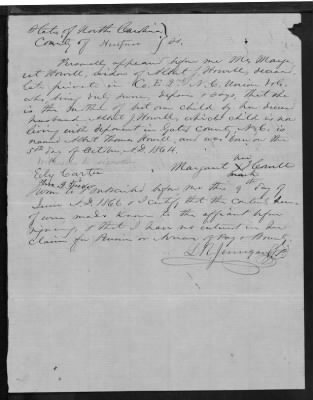 State of North Carolina
County of } ss.
Personally appeared before me Mrs Marga
ret Howell, widow of Abbot J Howell, deceas
late private in Co. E 2nd N.C. Union Vols
who being duly sworn, deposes & says, that she
is the mother of but one Child by her
husband Abbot J Howell, which child is now
living with deponent in Gates County, N.C. is
named Thomas Howell, and was born on the
5th day of October A.D. 1864.
Ely Carter
her
Margaret X
mark
& subscribed before me this 9th day of
June A.D. 1866 & I certify that the contents here
of were made known to the affiant before
signing, & that I have no interest in her
Claim for Pension or Arrears of Pay or Bounty